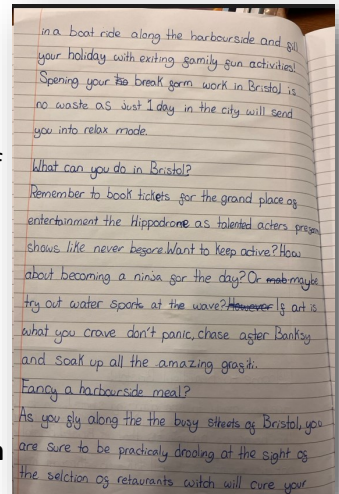 in a boat ride along the harbourside and fill
your holiday with exiting family fun activities!
Spening your break form work in Bristol is
no waste as Just 1 day in the city will send
you into relax mode.
What can you do in Bristol?
Remember to book tickets for the grand place of
entertainment the Hippodrome as talented acters presen
shows like never before. Want to keep active? How
about becoming a ninja for the day? Or maybe
try out water sports at the wave? However If art is
what you crave don't panic, chase after Banksy
and soak up all the amazing grafiti.
Fancy a harbourside meal?
As you fly along the the busy streets of Bristol, you
are sure to be practicaly drooling at the sight of
the selction of retaurants witch will cure your